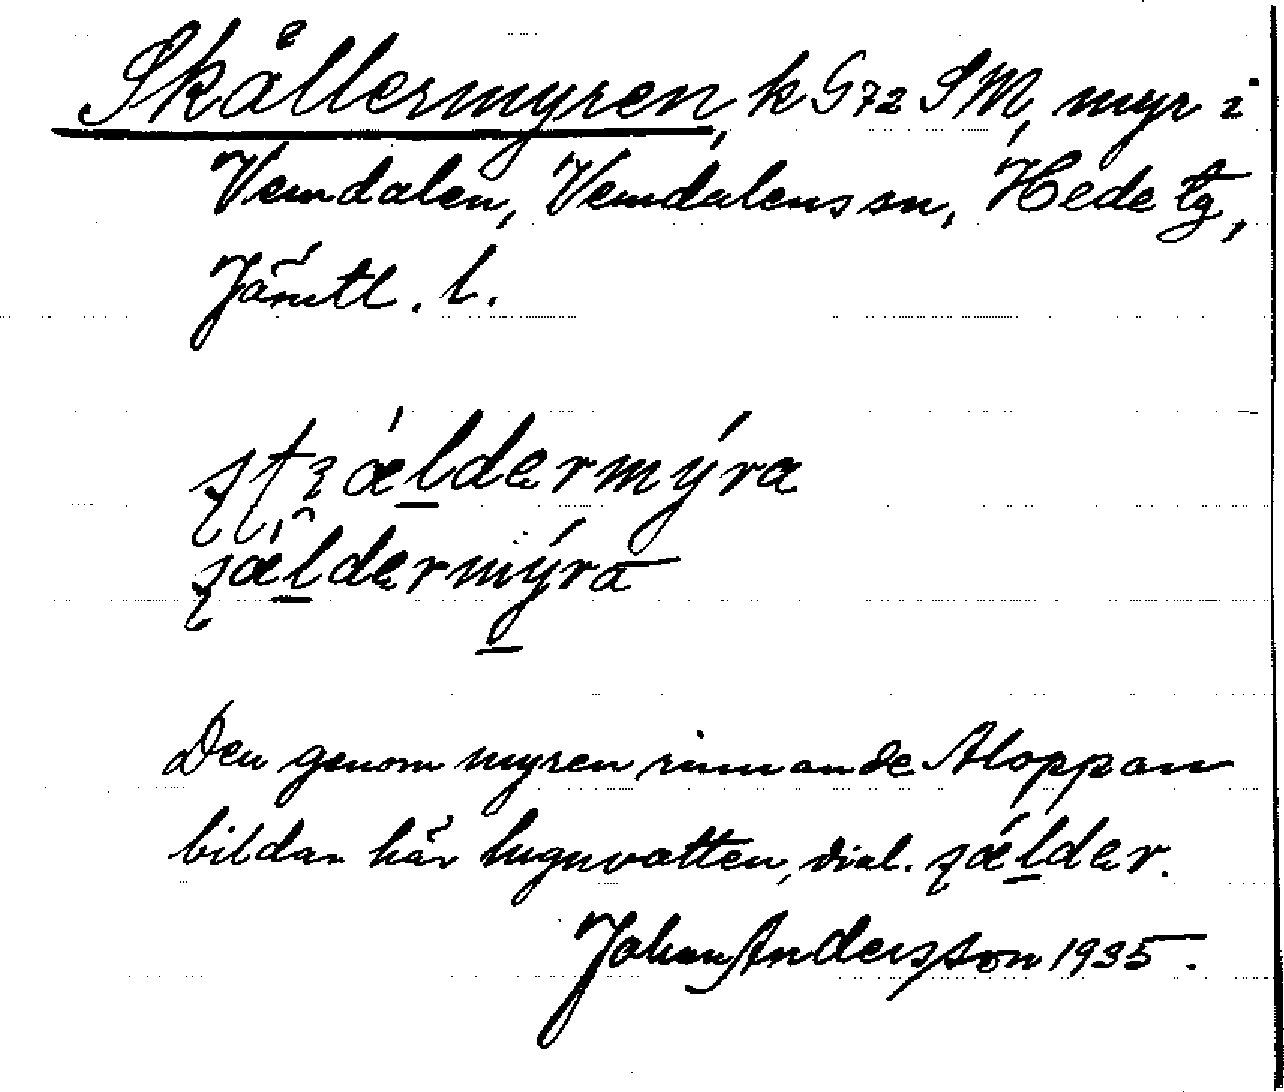 Skållermyren, k G72 SM, myr i
Vemdalen, Vemdalens sn, Hede tg,
Jämtl. l.
ældermýra
ældermýra
Den genom myren rinnande Aloppan
bildar här lugnvatten, dial. ǽlder.
Johan Andersson 1935.